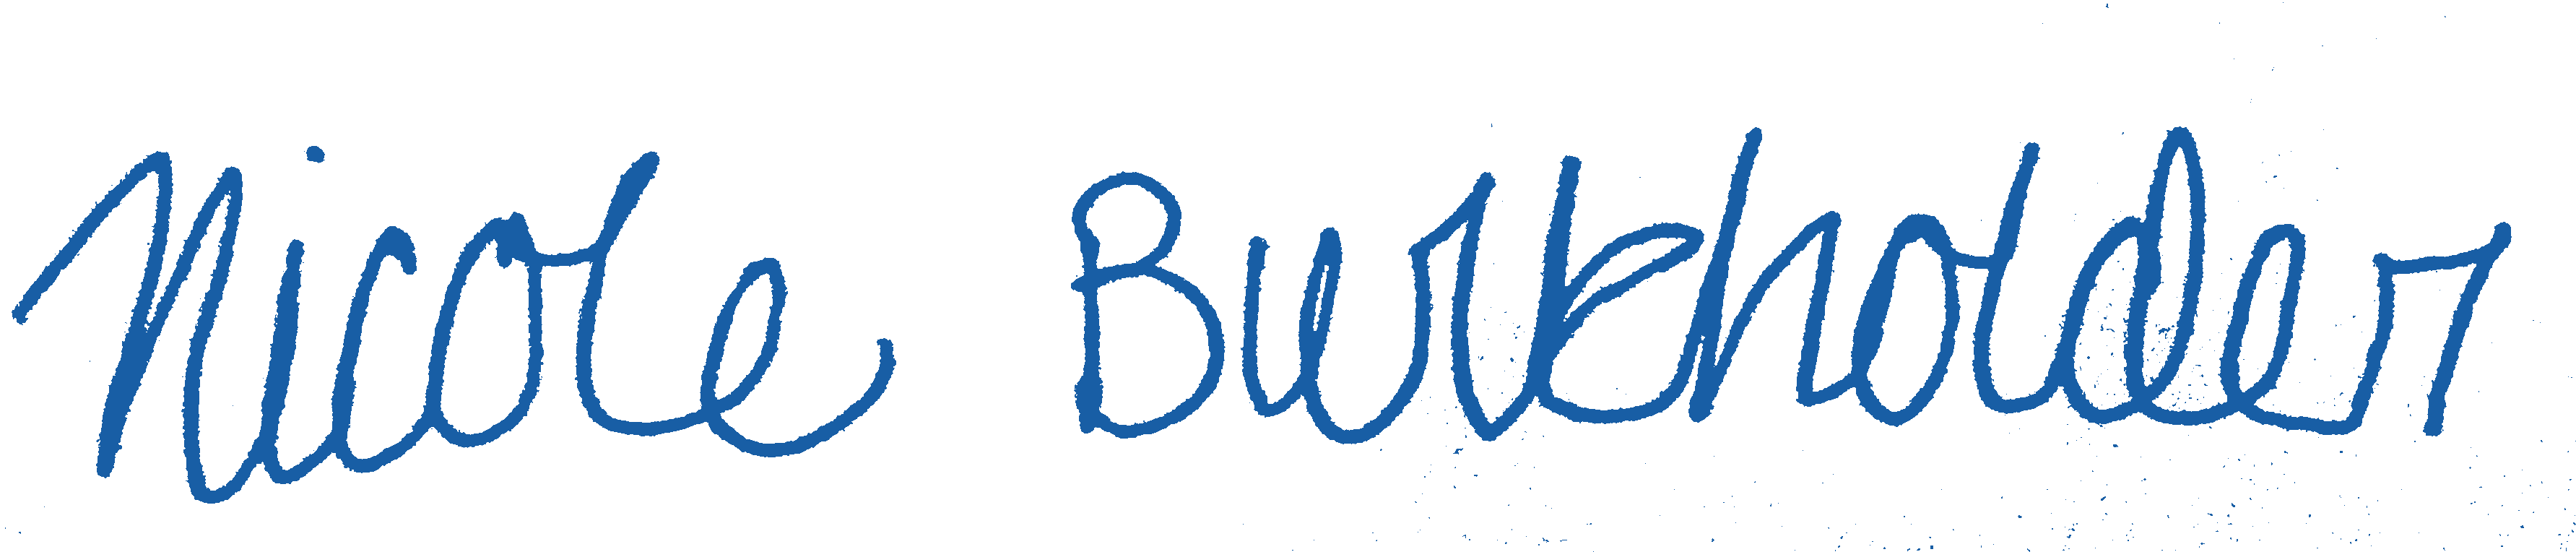 Nicole Burkholder